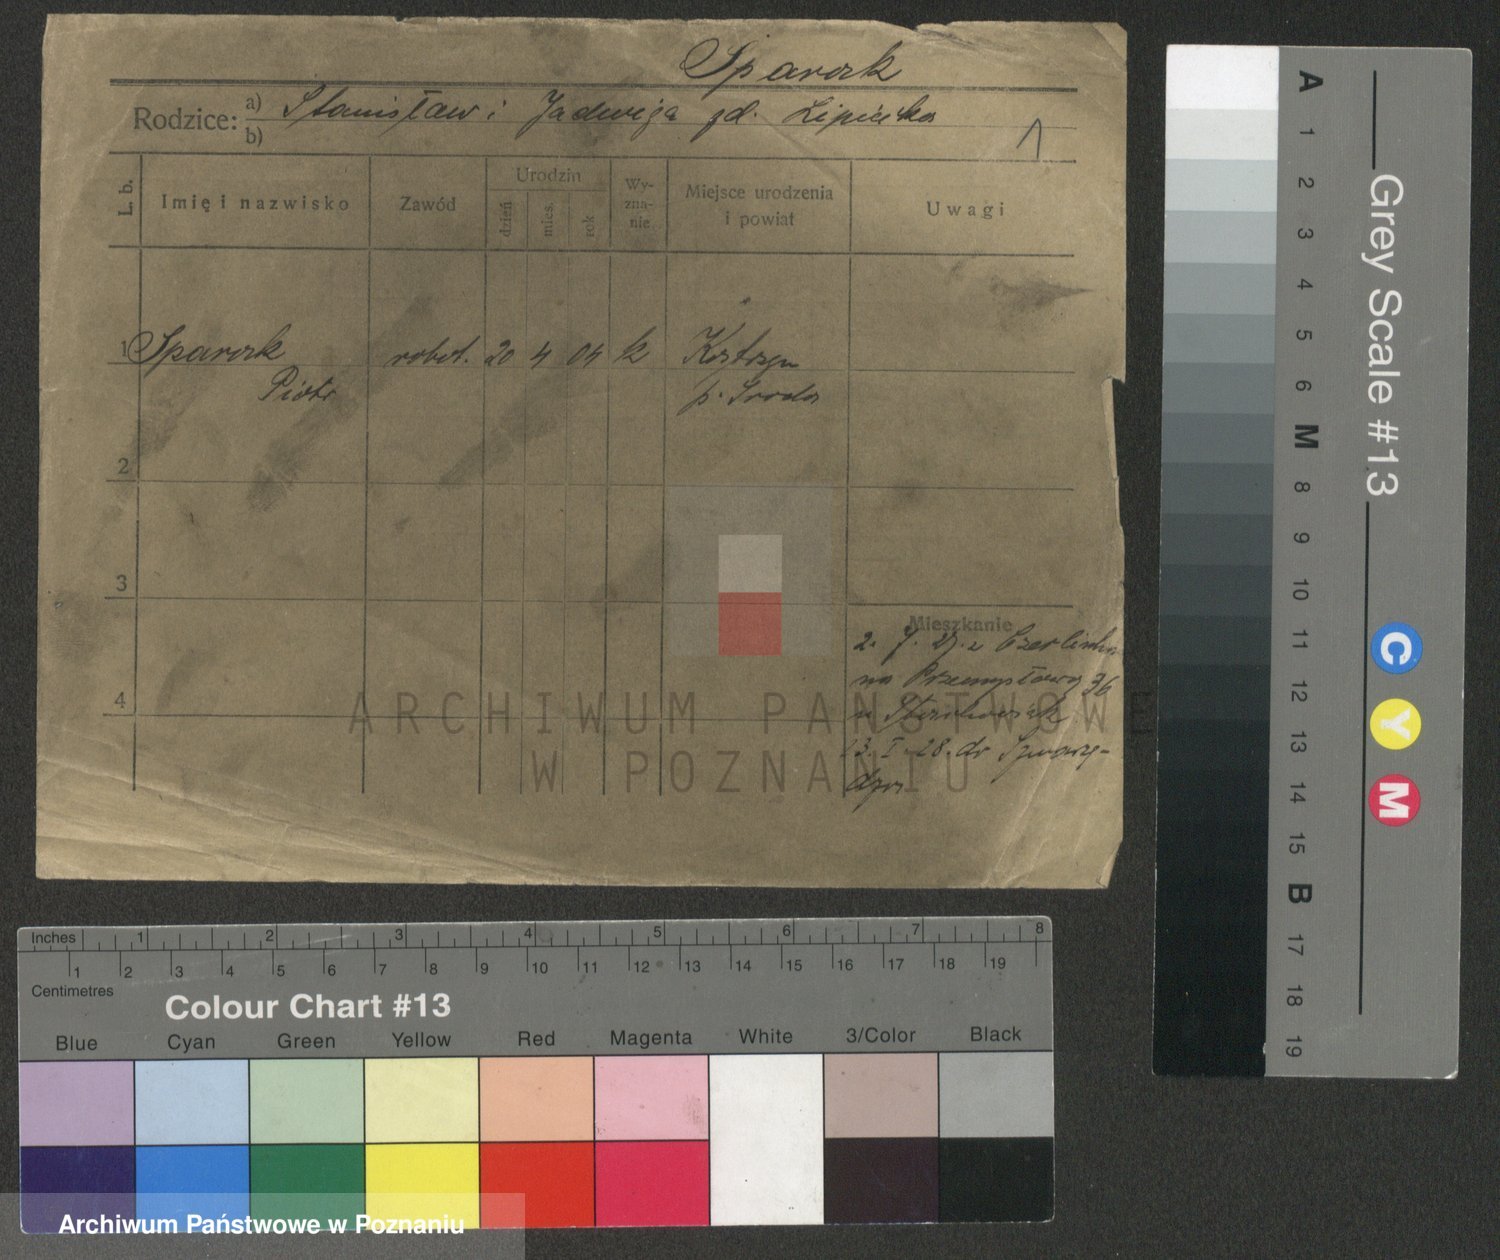 Sparok
Rodzice: a) Stanisław i Jadwiga zd. Lipińska
b)
1
L. b. Imię i nazwisko Zawód Urodzin dzień mies. rok Wyznanie Miejsce urodzenia i powiat Uwagi
1 robot. 20 4 04 k Kostrzyn
Piotr p. Środa
2
3
Mieszkanie
2. 7. 27. z
na Przemysłową 36
4 u
13. I. 28. do Szwarzę-
dza
ARCHIWUM PAŃSTWOWE
W POZNANIU
A 1 2 3 4 5 6 M 8 9 10 11 12 13 14 15 B 17 18 19
Grey Scale #13
C Y M
Inches 1 2 3 4 5 6 7 8
1 2 3 4 5 6 7 8 9 10 11 12 13 14 15 16 17 18 19
Centimetres
Colour Chart #13
Blue Cyan Green Yellow Red Magenta White 3/Color Black
Archiwum Państwowe w Poznaniu